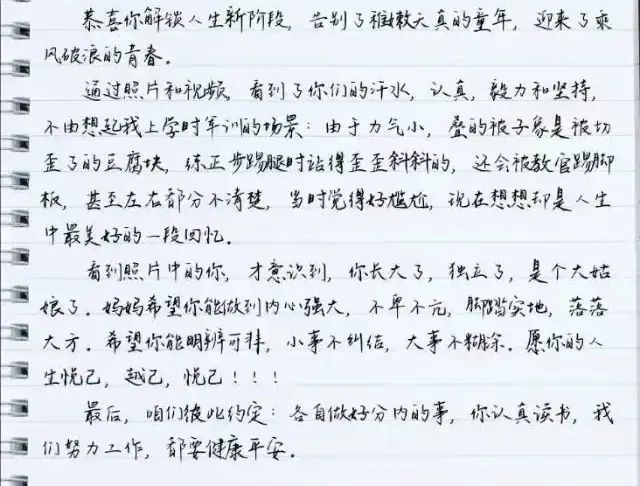 恭喜你解锁人生新阶段，告别了稚嫩天真的童年，迎来了乘
风破浪的青春。
通过照片和视频，看到了你们的汗水，认真，毅力和坚持，
不由想起我上学时军训的场景：由于力气小，叠的被子象是被切
歪了的豆腐块，练正步踢腿时站得歪歪斜斜的，还会被教官踢脚
板，甚至左右部分不清楚，当时觉得好尴尬，现在想想却是人生
中最美好的一段回忆。
看到照片中的你，才意识到，你长大了，独立了，是个大姑
娘了。妈妈希望你能做到内心强大，不卑不亢，脚踏实地，落落
大方。希望你能明辨可非，小事不纠结，大事不糊涂。愿你的人
生悦己，越己，悦己！！！
最后，咱们彼此约定：各自做好分内的事，你认真读书，我
们努力工作，都要健康平安。